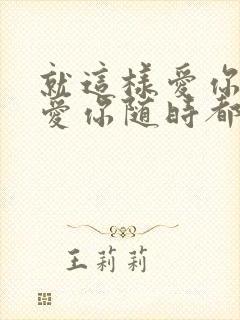 就這樣愛你
愛你隨時都
王莉莉